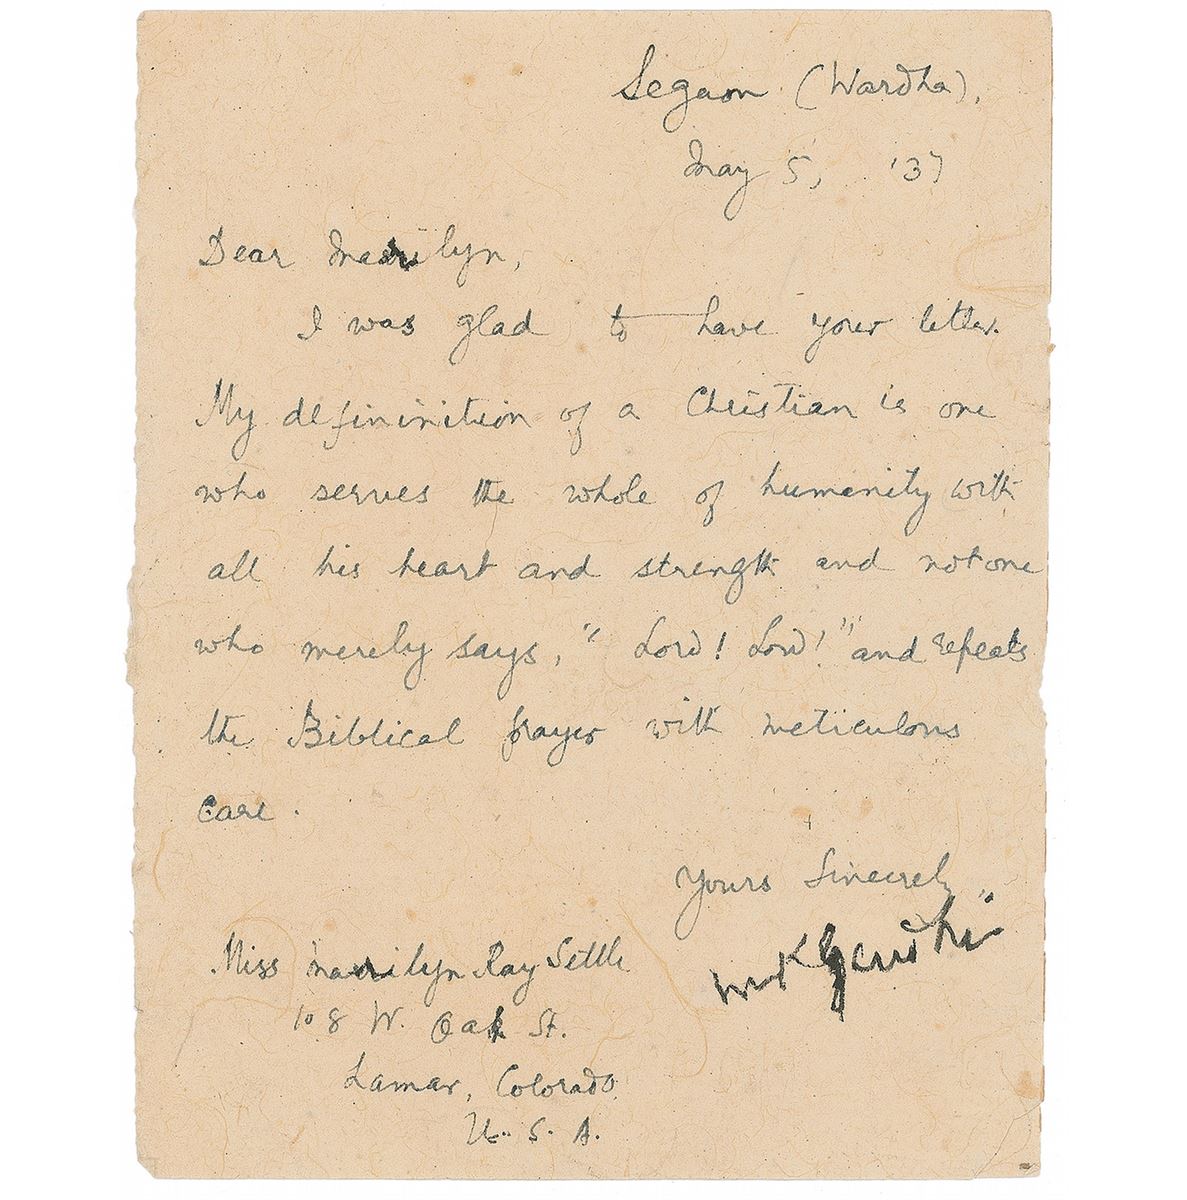 Segaon (Wardha),
May 5, '37
Dear Marilyn,
I was glad to have your letter.
My defininition of a Christian is one
who serves the whole of humanity with
all his heart and strength and not one
who merely says, "Lord! Lord!" and repeats
the Biblical prayer with meticulous
care.
Yours Sincerely,
MKGandhi
Miss Marilyn Ray Settle
108 W. Oak St.
Lamar, Colorado
U. S. A.